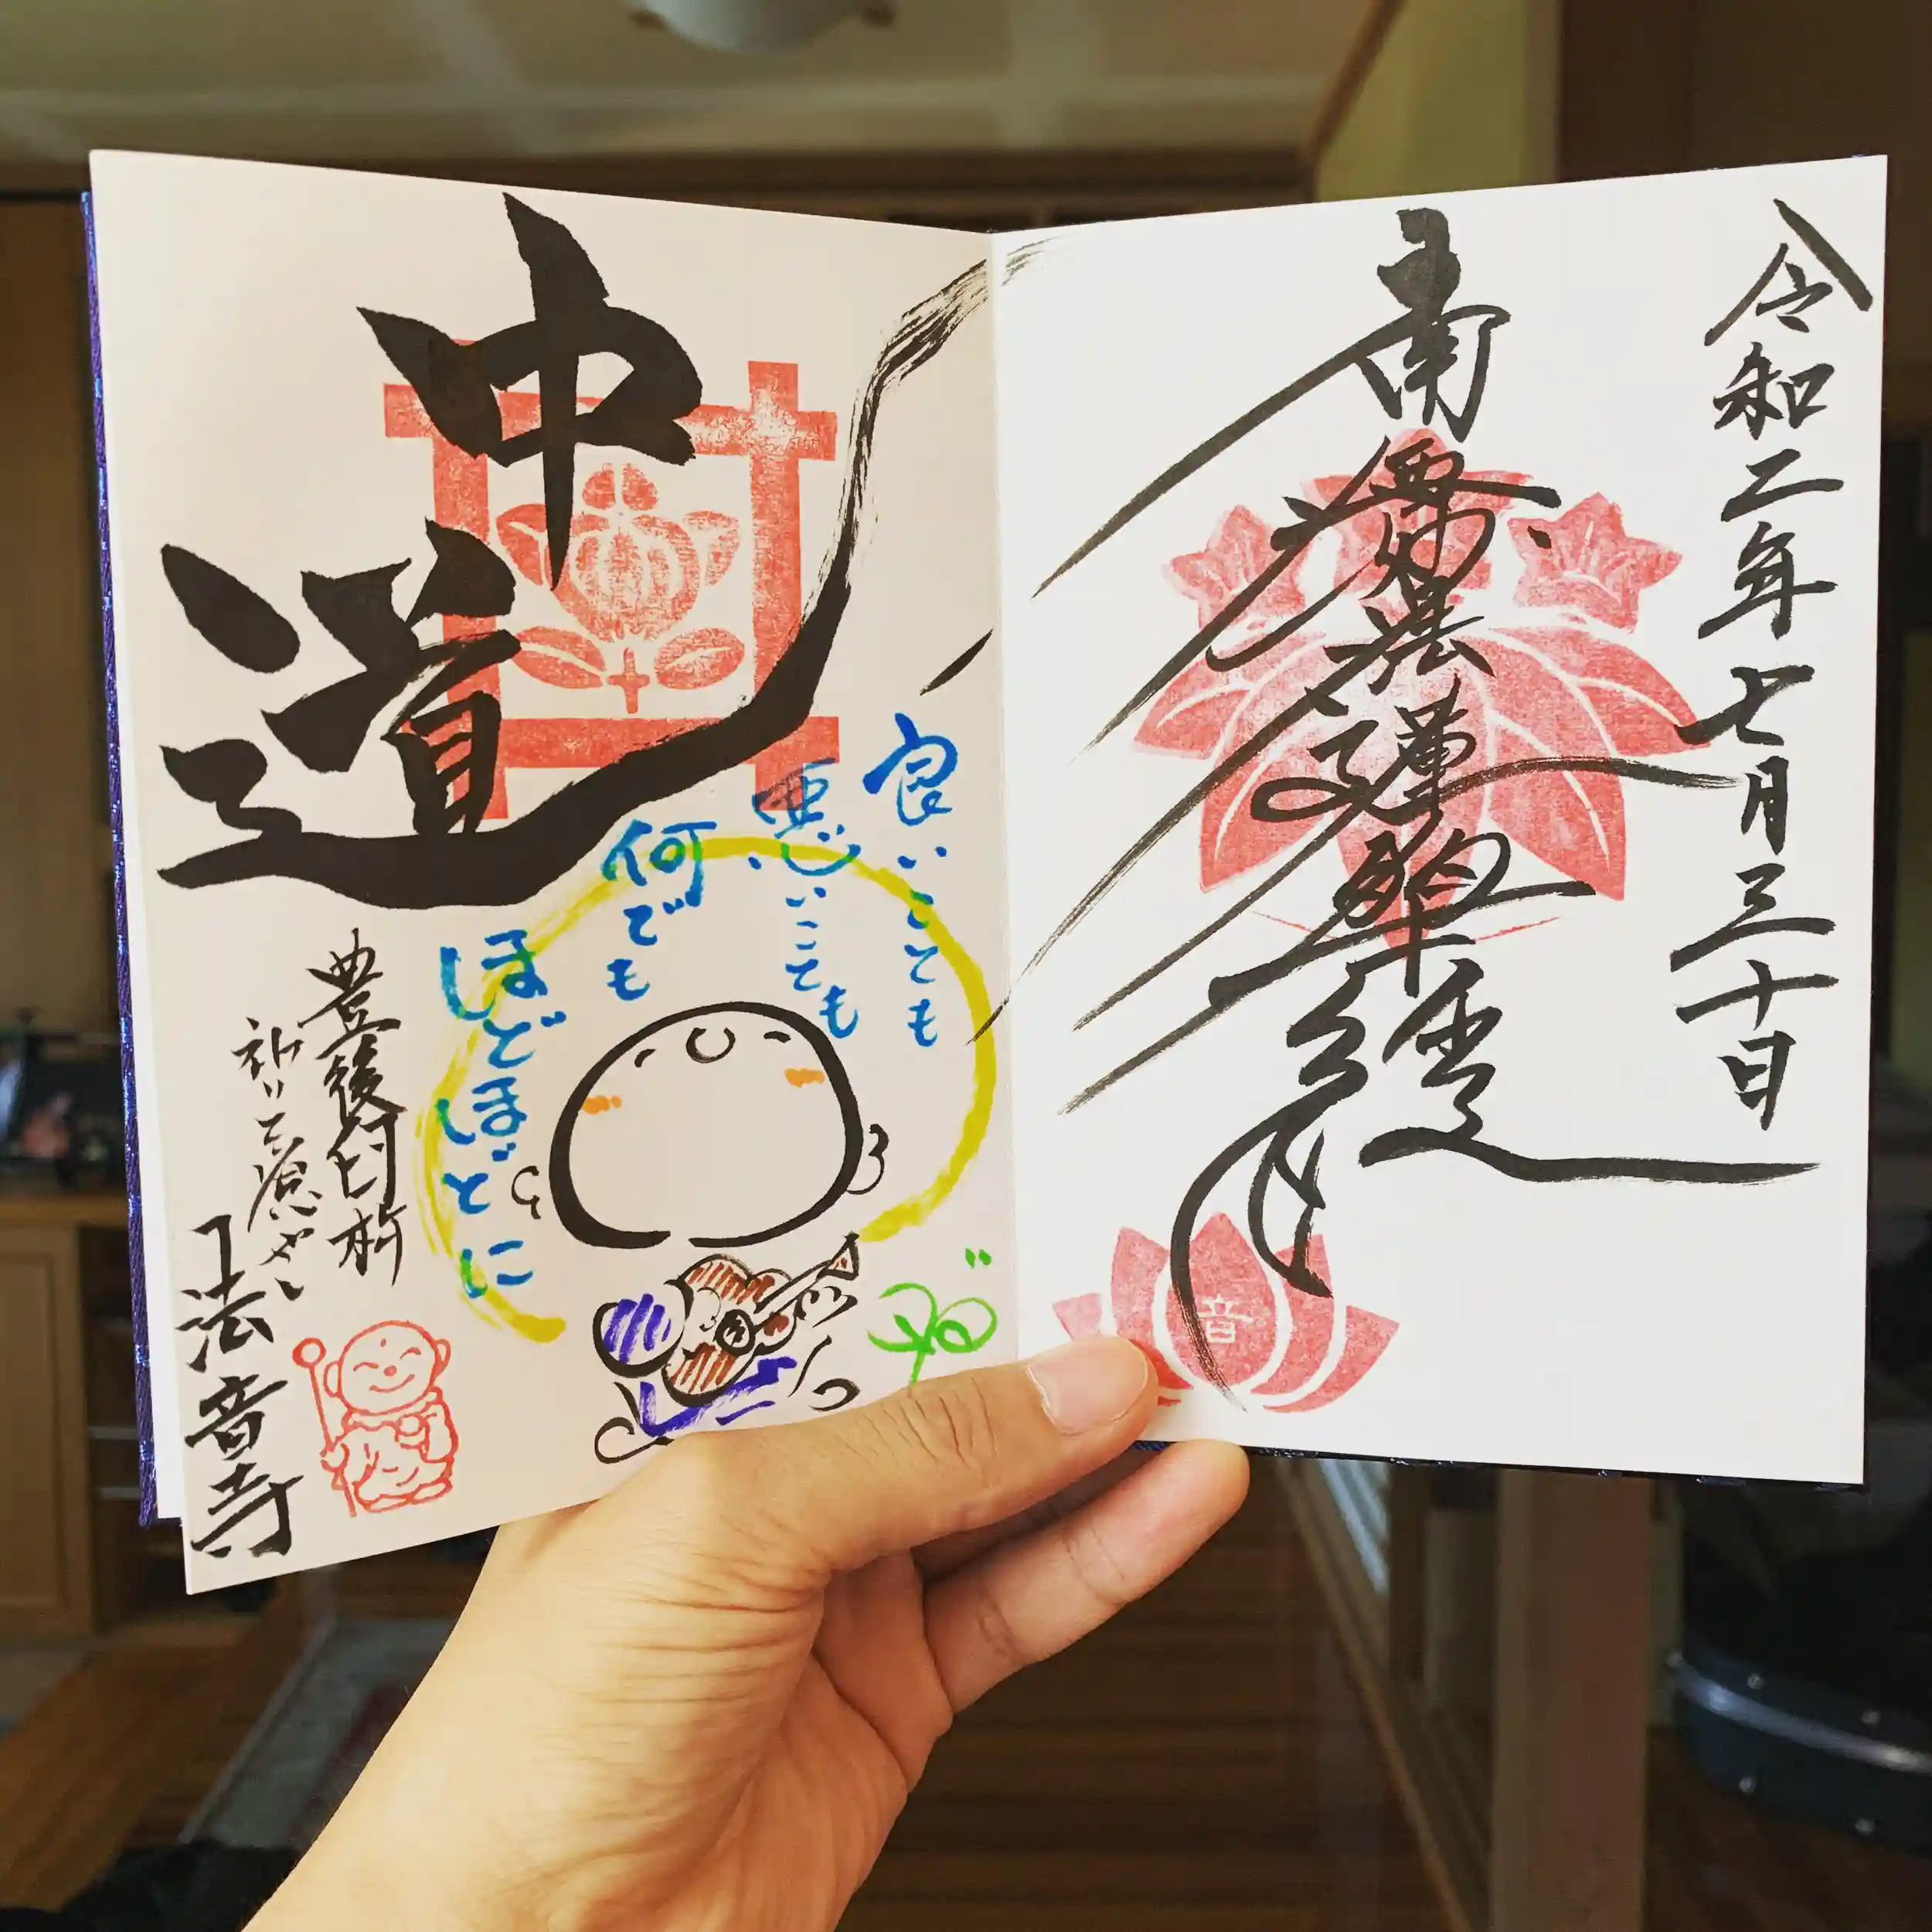 令和二年七月三十日
南無妙法蓮華経
音
中道
良いことも
悪いことも
何でも
ほどほどに
豊後臼杵
祈りと癒やし
法音寺